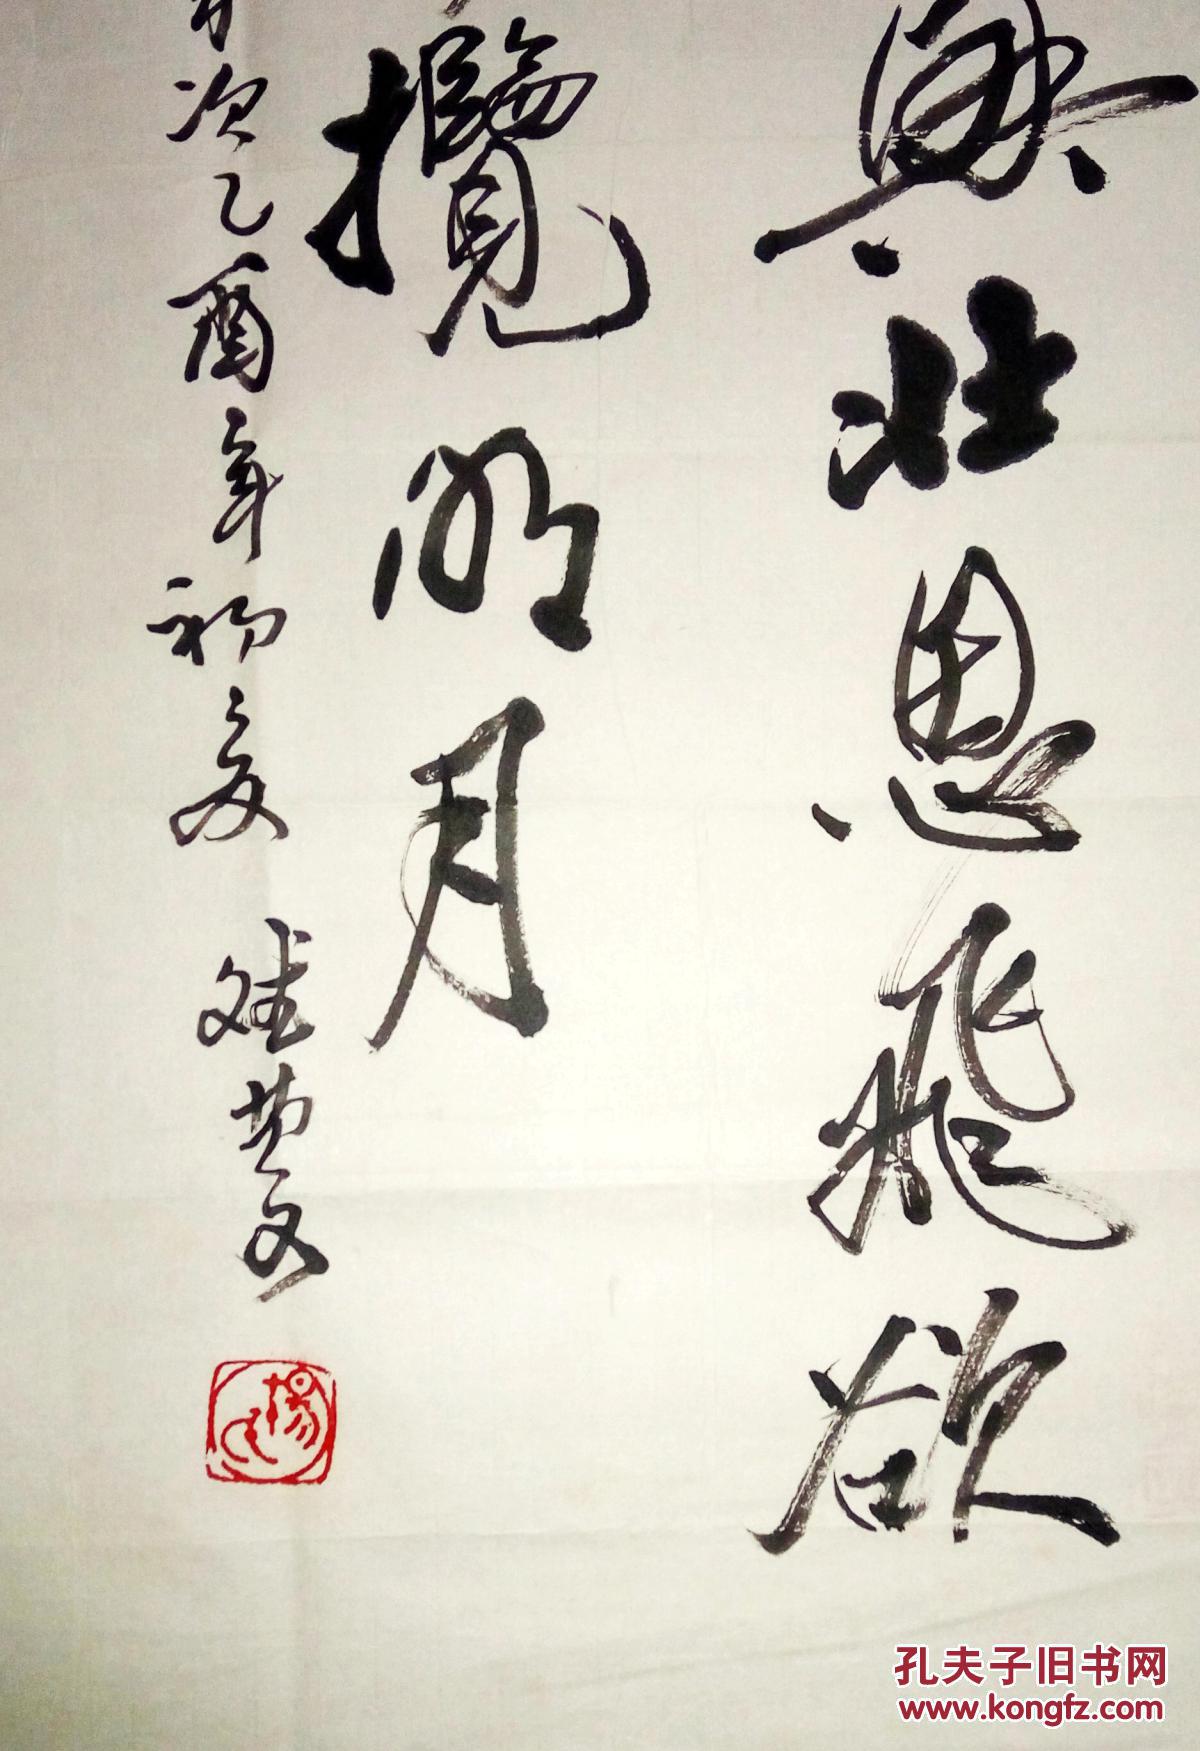 興壯思飛欲
攬明月
次乙酉年初夏
孔夫子旧书网
www.kongfz.com